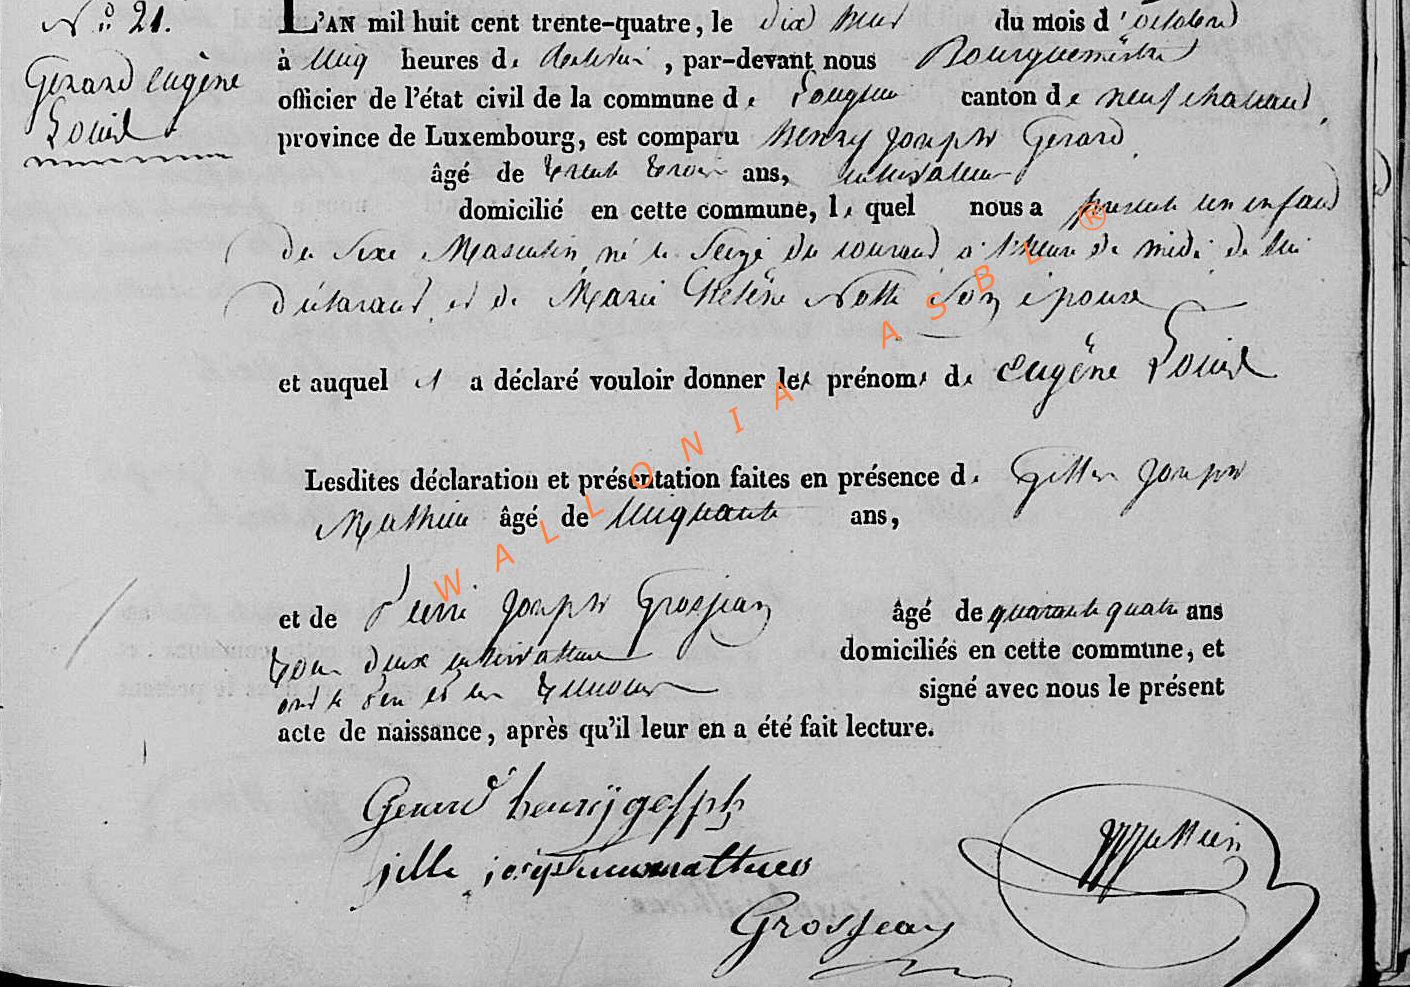 N.° 21.
Gerard Eugène
Louis
L'AN mil huit cent trente-quatre, le dix neuf du mois d'octobre
à cinq heures de relevée, par-devant nous Bourguemestre
officier de l'état civil de la commune de Louglier canton de neufchateau
province de Luxembourg, est comparu henry joseph Gerard
âgé de trente trois ans, cultivateur
domicilié en cette commune, le quel nous a presenté un enfant
du sexe Masculin, né le seize du courant à l'heure de midi de lui
déclarant, et de Marie Hélène Notte son épouse
et auquel il a déclaré vouloir donner les prénoms de Eugène Louis
Lesdites déclaration et présentation faites en présence de Gilles joseph
Mathieu âgé de cinquante ans,
et de Pierre joseph Grosjean âgé de quarante quatre ans
tous deux cultivateurs domiciliés en cette commune, et
ont le père et les temoins signé avec nous le présent
acte de naissance, après qu'il leur en a été fait lecture.
Gerard henrÿ joseph
jille joseph mathieu
Grosjean
WALLONIA ASBL ®